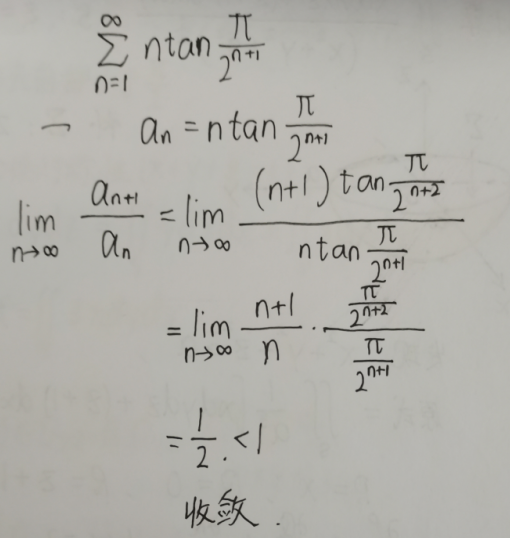 \sum_{n=1}^{\infty} n\tan\frac{\pi}{2^{n+1}}
一 a_n = n\tan\frac{\pi}{2^{n+1}}
\lim_{n\to\infty} \frac{a_{n+1}}{a_n} = \lim_{n\to\infty} \frac{(n+1)\tan\frac{\pi}{2^{n+2}}}{n\tan\frac{\pi}{2^{n+1}}}
= \lim_{n\to\infty} \frac{n+1}{n} \cdot \frac{\frac{\pi}{2^{n+2}}}{\frac{\pi}{2^{n+1}}}
= \frac{1}{2}. < 1
收敛.